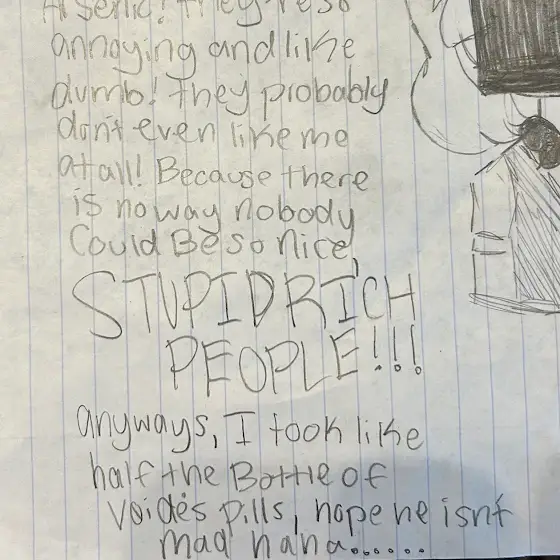 Arsenic! They're so
annoying and like
dumb! They probably
don't even like me
at all! Because there
is no way nobody
Could Be so nice,
STUPID RICH
PEOPLE!!!
anyways, I took like
half the Bottle of
Voidès pills, hope he isnt
mad haha......